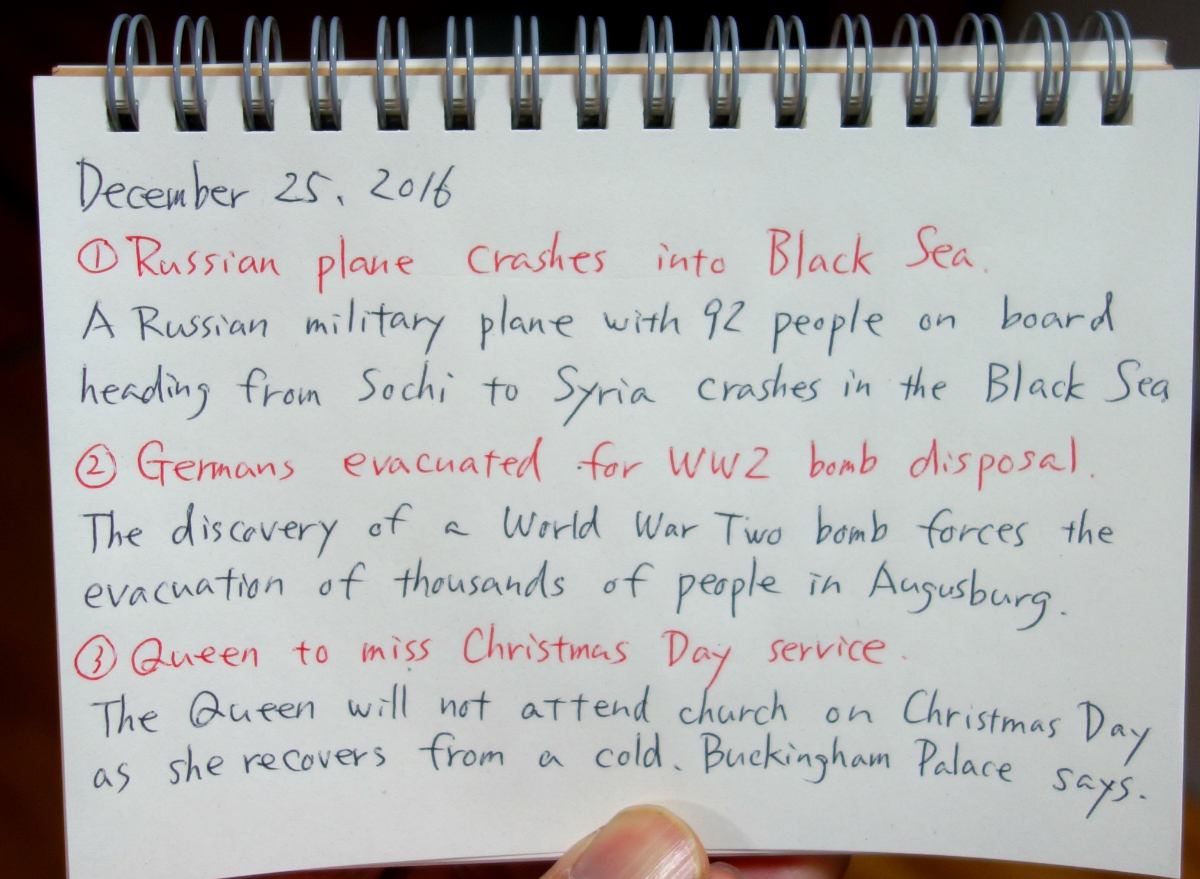 December 25, 2016
① Russian plane crashes into Black Sea.
A Russian military plane with 92 people on board
heading from Sochi to Syria crashes in the Black Sea
② Germans evacuated for WW2 bomb disposal.
The discovery of a World War Two bomb forces the
evacuation of thousands of people in Augusburg.
③ Queen to miss Christmas Day service.
The Queen will not attend church on Christmas Day
as she recovers from a cold, Buckingham Palace says.